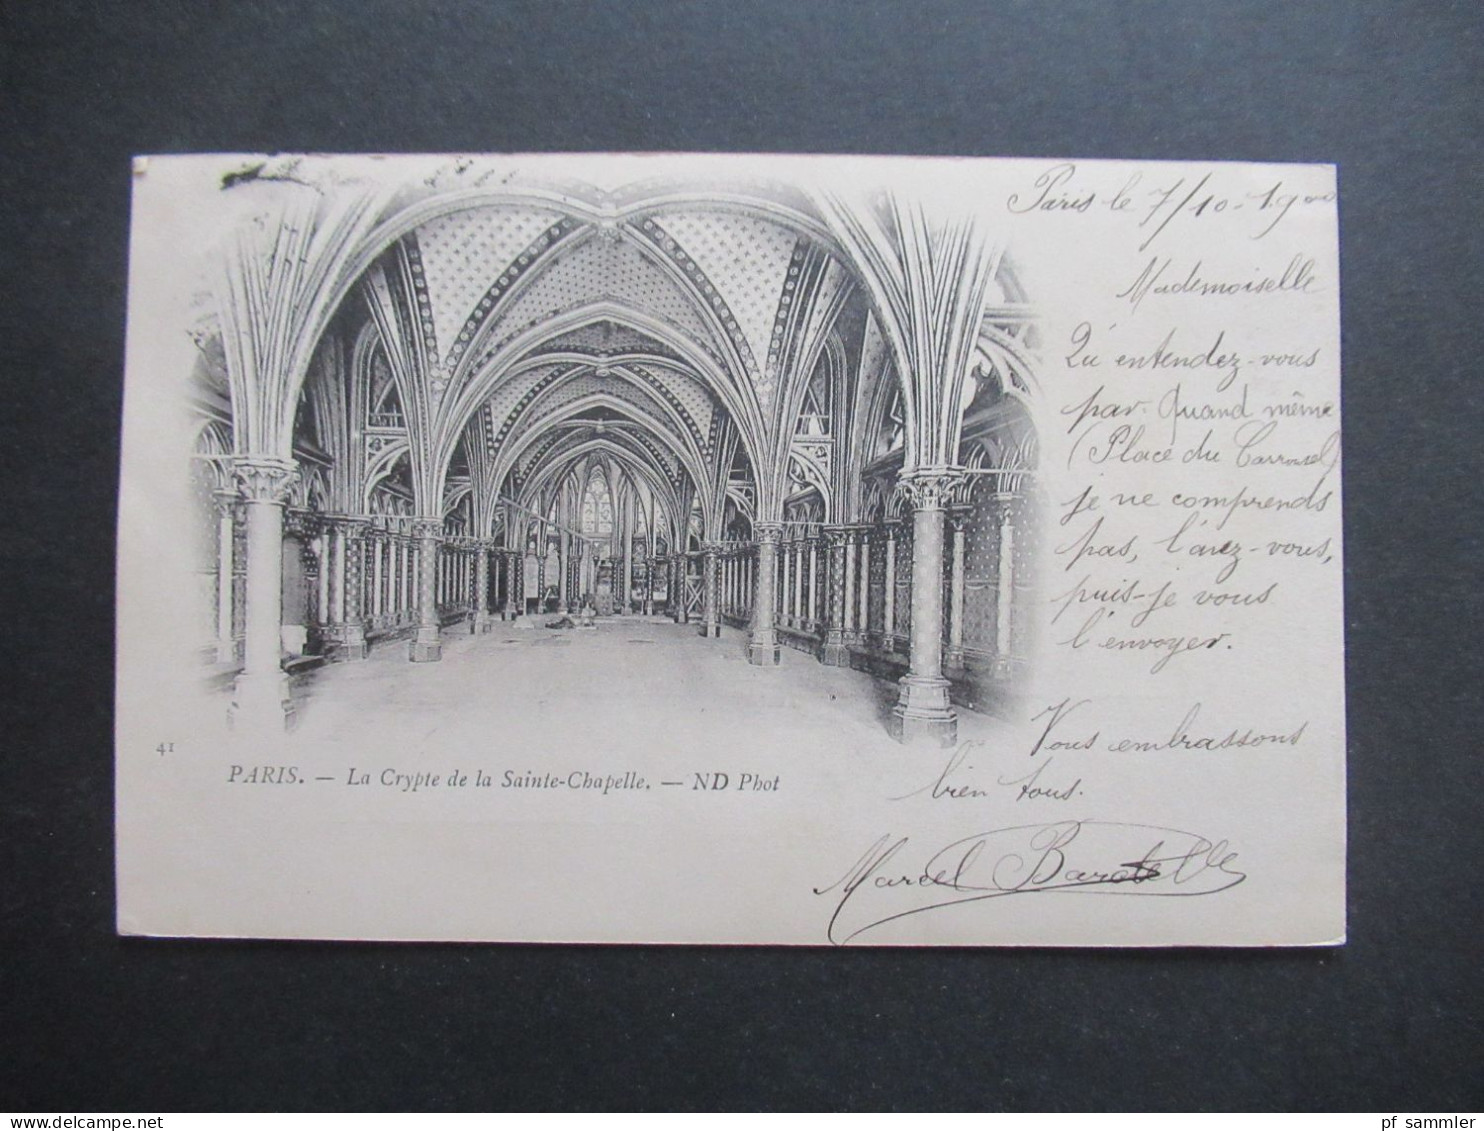 Paris le 7/10-1900
Mademoiselle
Qu'entendez-vous
par Quand même
(Place du Carrousel)
je ne comprends
pas, l'avez-vous,
puis-je vous
l'envoyer.
Vous embrassons
bien tous.
Marcel
41
PARIS. — La Crypte de la Sainte-Chapelle. — ND Phot
www.delcampe.net
pf_sammler